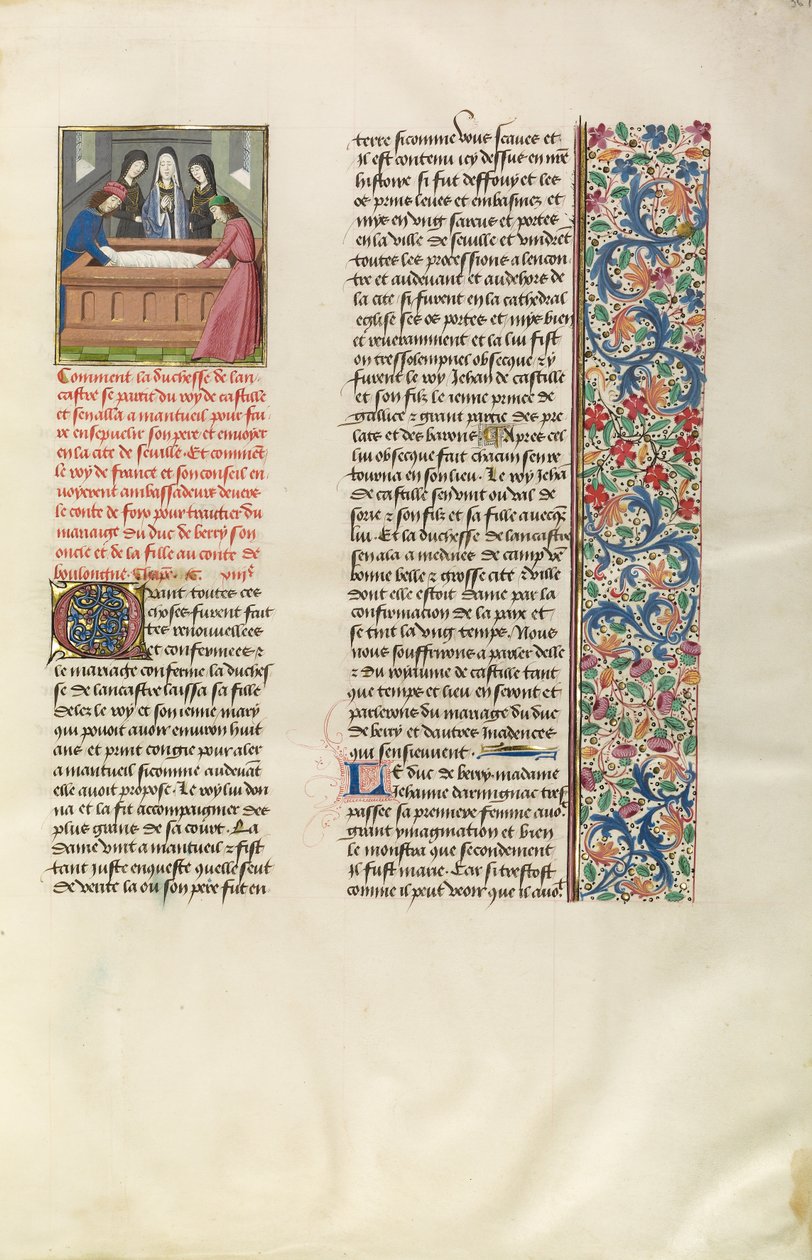 Comment la duchesse de lan-
castre se partit du roy de castille
et sen alla a mantueil pour fai-
re ensepulir son pere et envoyer
en la cite de seville. Et commēt
le roy de france et son conseil en-
voyerent ambassadeurs devers
le conte de foix pour traitier du
mariaige du duc de berry son
oncle et de la fille au conte de
boulongne. Chapr̄. C. xiiij.e
Quant toutes ces
choses furent fait-
tes renouvellees
et confermees ⁊
le mariage conferme la duches
se de lancastre laissa sa fille
delez le roy et son ienne mary
qui povoit avoir environ huit
ans et print congie pour aler
a mantueil sicomme audevāt
elle avoit propose. Le roy lui don
na et la fit accompaignier des
plus grans de sa court. La
dame vint a mantueil ⁊ fist
tant iuste enqueste quelle sceut
de verite la ou son pere fut en-
terre sicomme vous scaves et
il est contenu icy dessus en nr̄e
histoire si fut deffouy et les
os prins leves et embasmez et
mys en ung sarcus et portes
en la ville de seville et vindrēt
toutes les processions a lencon-
tre et audevant et audehors de
la cite. si furent en la cathedral
eglise ses os portes et mys bien
et reveramment et la lui fist
on tressolempnel obseque ⁊ y
furent le roy Jehan de castille
et son filz le ienne prince de
gallice ⁊ grant partie des pre
lats et des barons. Apres cel
lui obseque fait chacun sen re
tourna en son lieu. Le roy Jehā
de castille sen vint ou val de
sorie ⁊ son filz et sa fille avecq̄s
lui. Et la duchesse de lancastre
sen ala a medines de camp vē
bonne belle ⁊ grosse cite ⁊ ville
dont elle estoit dame par la
confirmation de la paix et
se tint la ung temps. Nous
nous souffrirons a parler delle
⁊ du royaume de castille tant
que temps et lieu en seront et
parlerons du mariage du duc
de berry et dautres incidences
qui sensieuvent.
LE duc de berry madame
Jehanne darmignac tres
passee sa premiere femme avoit
grant ymagination et bien
le monstra que secondement
il fust marie. Car si trestost
comme il peut veoir que il avot